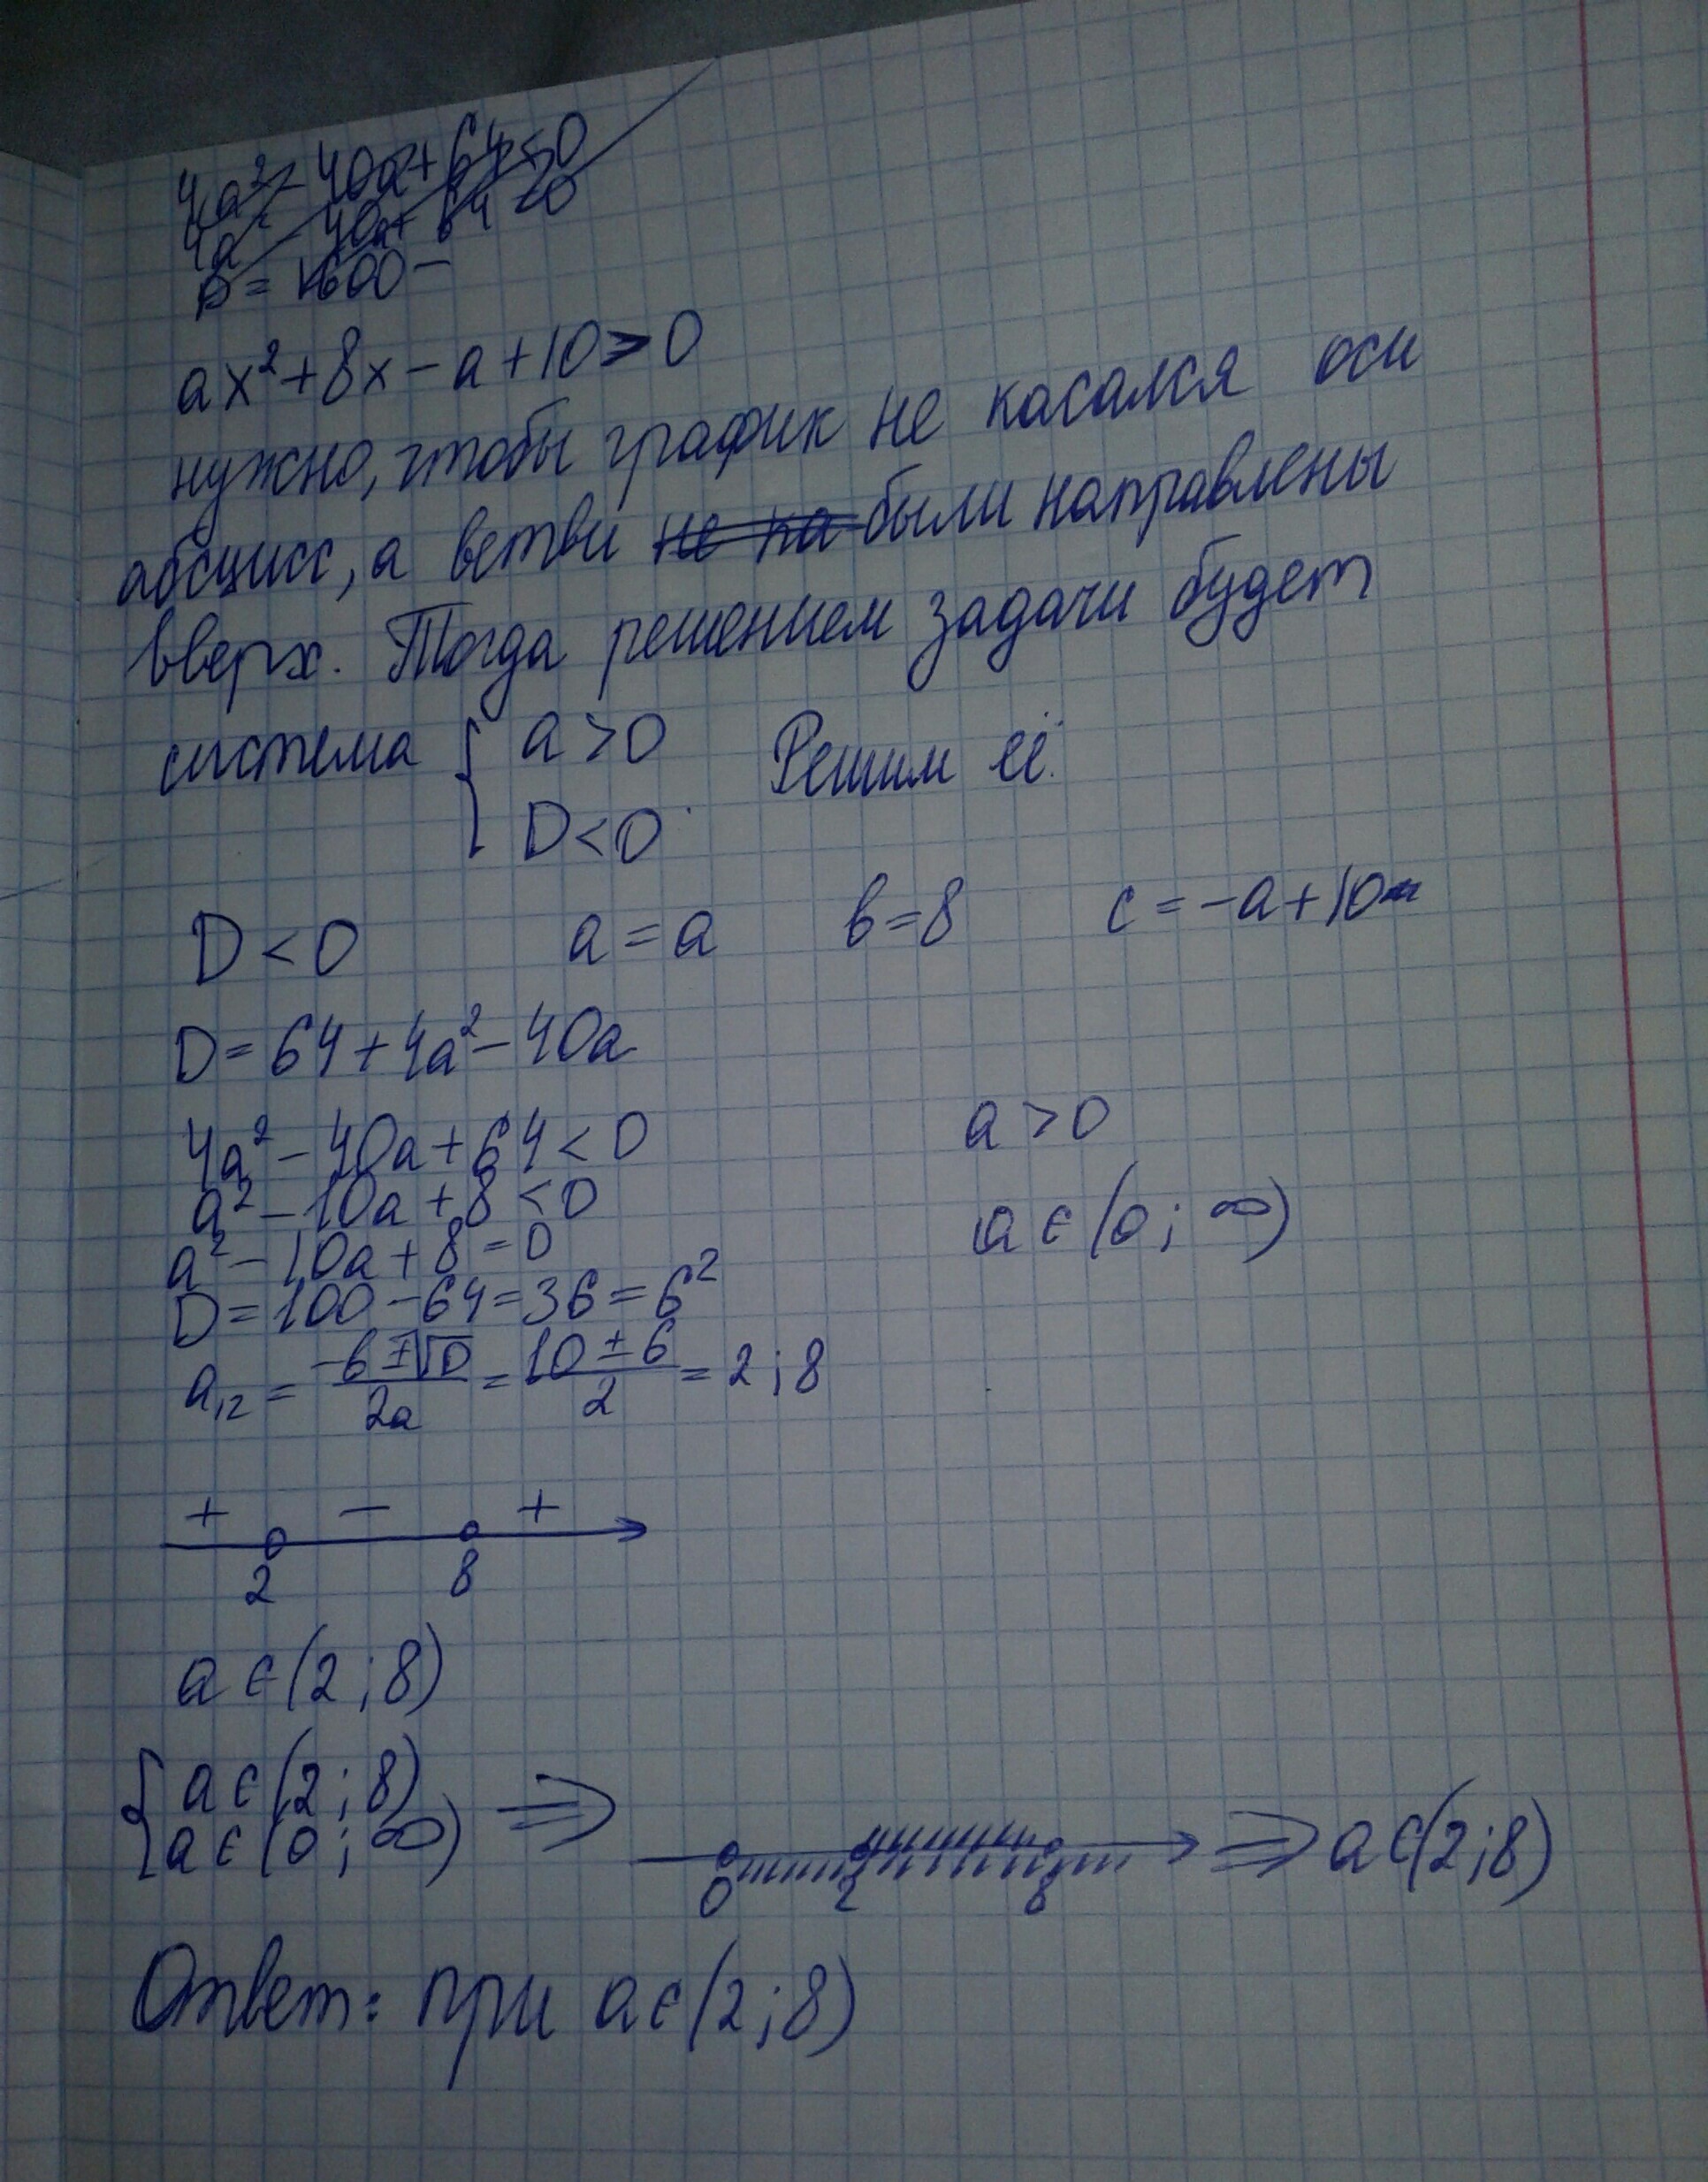 4a² - 40a + 64 < 0
4a² - 40a + 64 < 0
D = 1600 -
ax² + 8x - a + 10 > 0
нужно, чтобы график не касался оси
абсцисс, а ветви не ка были направлены
вверх. Тогда решением задачи будет
система { a > 0 Решим её.
D < 0
D < 0 a = a b = 8 c = -a + 10
D = 64 + 4a² - 40a
4a² - 40a + 64 < 0 a > 0
a² - 10a + 8 < 0 a ∈ (0; ∞)
a² - 10a + 8 = 0
D = 100 - 64 = 36 = 6²
a₁₂ = (-b ± √D)/2a = (10 ± 6)/2 = 2; 8
+ - +
2 8
a ∈ (2; 8)
{ a ∈ (2; 8)
a ∈ (0; ∞) ⇒ 0 2 8 ⇒ a ∈ (2; 8)
Ответ: при a ∈ (2; 8)